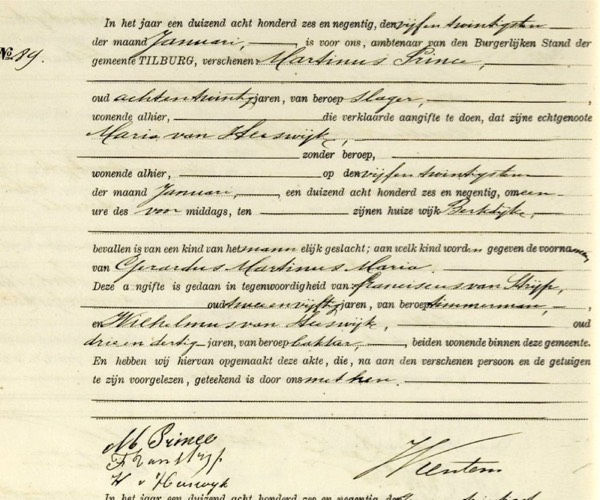 In het jaar een duizend acht honderd zes en negentig, den vijfentwintigsten
der maand Januari, is voor ons, ambtenaar van den Burgerlijken Stand der
No. 89.
gemeente TILBURG, verschenen: Martinus Prince,
oud achtentwintig jaren, van beroep slager,
wonende alhier, die verklaarde aangifte te doen, dat zijne echtgenoote
Maria van Heeswijk,
zonder beroep,
wonende alhier, op den vijfentwintigsten
der maand Januari, een duizend acht honderd zes en negentig, om een
ure des voor middags, ten zijnen huize wijk Berkdijk,
bevallen is van een kind van het mann elijk geslacht; aan welk kind worden gegeven de voornamen
van Gerardus Martinus Maria.
Deze aangifte is gedaan in tegenwoordigheid van Franciscus van Strijp,
oud twee en vijftig jaren, van beroep timmerman,
en Wilhelmus van Heeswijk, oud
drie en dertig jaren, van beroep bakker, beiden wonende binnen deze gemeente.
En hebben wij hiervan opgemaakt deze akte, die, na aan den verschenen persoon en de getuigen
te zijn voorgelezen, geteekend is door ons met hen.
M Prince
F van Strijp
H v Heeswyk
In het jaar een duizend acht honderd zes en negentig den